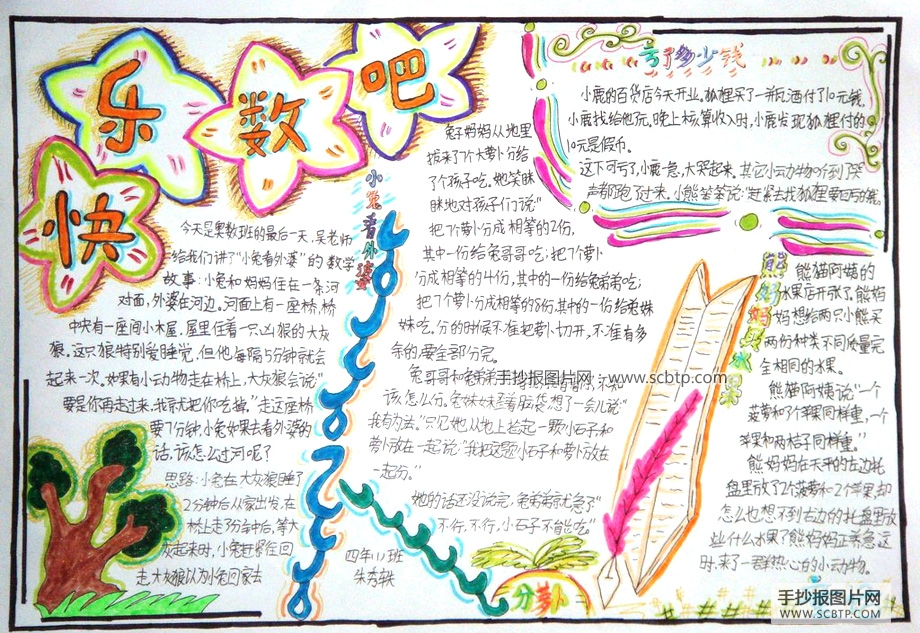 快
乐
数
吧
小兔看外婆
今天是奥数班的最后一天,吴老师
给我们讲了“小兔看外婆”的数学
故事:小兔和妈妈住在一条河
对面,外婆在河边。河面上有一座桥,桥
中央有一座间小木屋,屋里住着一只凶狠的大灰
狼。这只狼特别爱睡觉,但他每隔5分钟就会
起来一次。如果有小动物走在桥上,大灰狼会说“
要是你再走过来,我就把你吃掉。”走这座桥
要7分钟,小兔如果去看外婆的
话,该怎么过河呢?
思路:小兔在大灰狼睡了
2分钟后从家出发,在
桥上走了3分钟后,等大
灰起来时,小兔赶紧往回
走,大灰狼认为小兔回家去
兔子妈妈从地里
拔来了7个大萝卜分给
了个孩子吃。她笑眯
眯地对孩子们说“
把7个萝卜分成相等的2份,
其中一份给兔哥哥吃;把7个萝卜
分成相等的4份,其中的一份给兔弟弟吃;
把7个萝卜分成相等的8份,其中的一份给兔妹
妹吃。分的时候不准把萝卜切开,不准有多
余的,要全部分完。
兔哥哥和兔弟弟
手抄报图片网:www.scbtp.com
该怎么分。兔妹妹歪着脑袋想了一会儿说“
我有办法。”只见她从地上拾起一颗小石子和
萝卜放在一起说:“我把这颗小石子和萝卜放在
一起分。”
她的话还没说完,兔弟弟就急了“
不行,不行,小石子不能吃”
四年11班
朱秀轶
分萝卜
亏了多少钱
小鹿的百货店今天开业。狐狸买了一瓶酒付了10元钱,
小鹿找给他元。晚上核算收入时,小鹿发现狐狸付的
10元是假币。
这下可亏了,小鹿一急,大哭起来。其它小动物听到了哭
声都跑了过来。小熊笨笨说“赶紧去找狐狸要回
熊妈妈买水果
熊猫阿姨的
水果店开张了。熊妈
妈想给两只小熊买
两份种类不同质量完
全相同的水果。
熊猫阿姨说“一个
菠萝和7个苹果同样重,一个
苹果和两桔子同样重。”
熊妈妈在天平的左边托
盘里放了2个菠萝和2个苹果,却
怎么也想不到右边的托盘里放
些什么水果了熊妈妈正着急这
时,来了一群热心的小动物。
手抄报图片网
WWW.SCBTP.COM